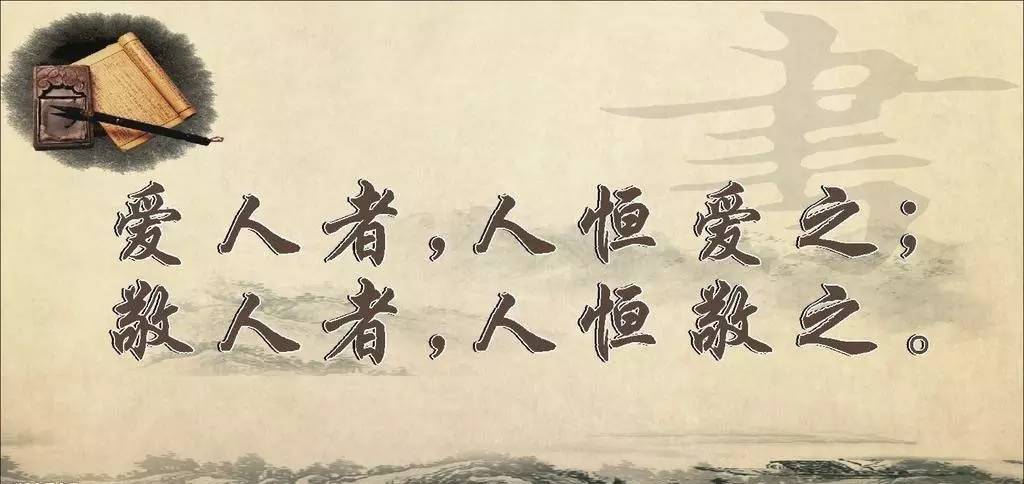 書
爱人者,人恒爱之;
敬人者,人恒敬之。